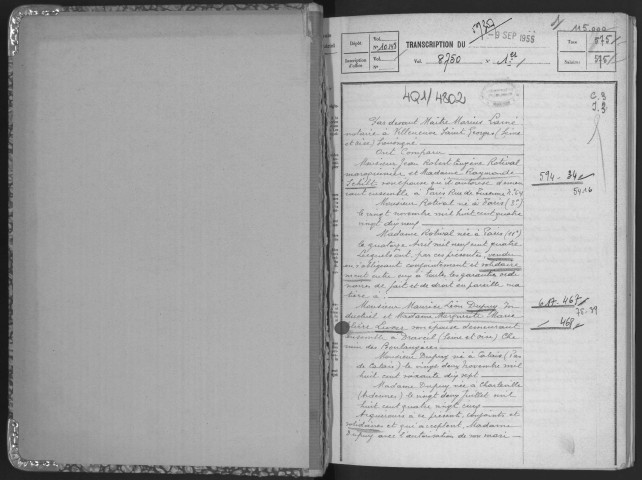 Dépôt
Vol.
N° 10.149
Inscription d'office
Vol.
N°
TRANSCRIPTION DU
9 SEP 1955
Vol. 8750 N° 1er
115.000
Taxe: 575
Salaire: 575
4Q1/4802
Par devant Maître Marius
notaire à Villeneuve Saint Georges (Seine
et Oise) soussigné
Ont Comparu
Monsieur Jean Robert Eugène Rotival
et Madame Raymonde
son épouse qu'il autorise demeu
rant ensemble à Paris Rue de Turenne N° 24
Monsieur Rotival né à Paris (3e)
le vingt novembre mil huit cent quatre
vingt dix neuf
Madame Rotival née à Paris (11e)
le quatorze Avril mil neuf cent quatre
Lesquels ont par ces présentes, vendu
en s'obligeant conjointement et solidaire
ment entre eux à toutes les garanties ordi
naires de fait et de droit en pareille ma
tière, à
Monsieur Maurice Léon Dupuy In
dustriel et Madame Marguerite Marie
son épouse demeurant
ensemble à Draveil (Seine et Oise) Che
min des Boulangères
Monsieur Dupuy né à Calais (Pas
de Calais) le vingt deux Novembre mil
huit cent soixante dix sept
Madame Dupuy née à Charleville
(Ardennes) le vingt deux Juillet mil
huit cent quatre vingt cinq
Acquéreurs à ce présents, conjoints et
solidaires et qui acceptent, Madame
Dupuy avec l'autorisation de son mari
594-34
54.16
467
78-79
468